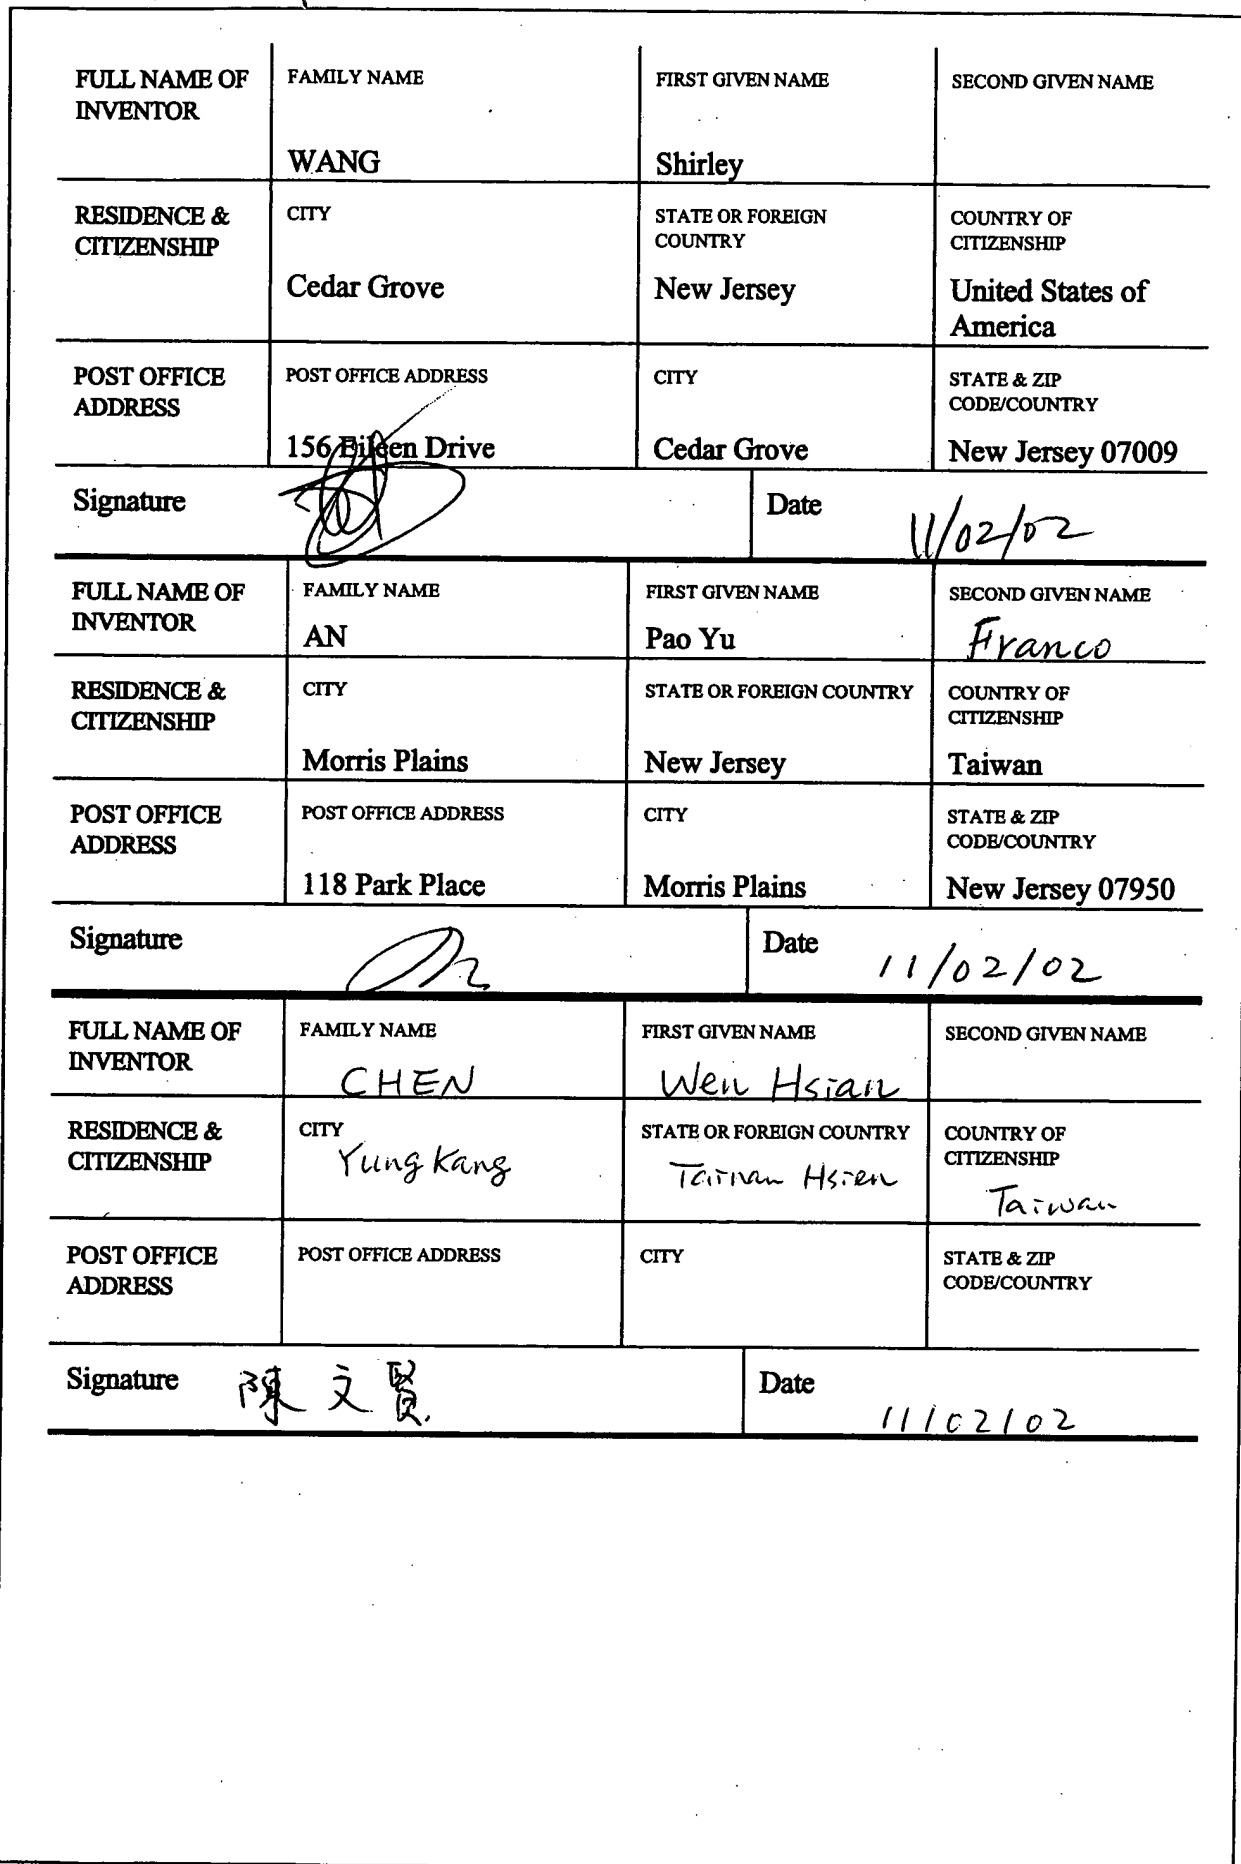 FULL NAME OF INVENTOR
FAMILY NAME
WANG
FIRST GIVEN NAME
Shirley
SECOND GIVEN NAME
RESIDENCE & CITIZENSHIP
CITY
Cedar Grove
STATE OR FOREIGN COUNTRY
New Jersey
COUNTRY OF CITIZENSHIP
United States of America
POST OFFICE ADDRESS
POST OFFICE ADDRESS
156 Eileen Drive
CITY
Cedar Grove
STATE & ZIP CODE/COUNTRY
New Jersey 07009
Signature
Date
11/02/02
FULL NAME OF INVENTOR
FAMILY NAME
AN
FIRST GIVEN NAME
Pao Yu
SECOND GIVEN NAME
Franco
RESIDENCE & CITIZENSHIP
CITY
Morris Plains
STATE OR FOREIGN COUNTRY
New Jersey
COUNTRY OF CITIZENSHIP
Taiwan
POST OFFICE ADDRESS
POST OFFICE ADDRESS
118 Park Place
CITY
Morris Plains
STATE & ZIP CODE/COUNTRY
New Jersey 07950
Signature
Date
11/02/02
FULL NAME OF INVENTOR
FAMILY NAME
CHEN
FIRST GIVEN NAME
Wen Hsian
SECOND GIVEN NAME
RESIDENCE & CITIZENSHIP
CITY
Yung Kang
STATE OR FOREIGN COUNTRY
Tainan Hsien
COUNTRY OF CITIZENSHIP
Taiwan
POST OFFICE ADDRESS
POST OFFICE ADDRESS
CITY
STATE & ZIP CODE/COUNTRY
Signature
陳文賢
Date
11/02/02